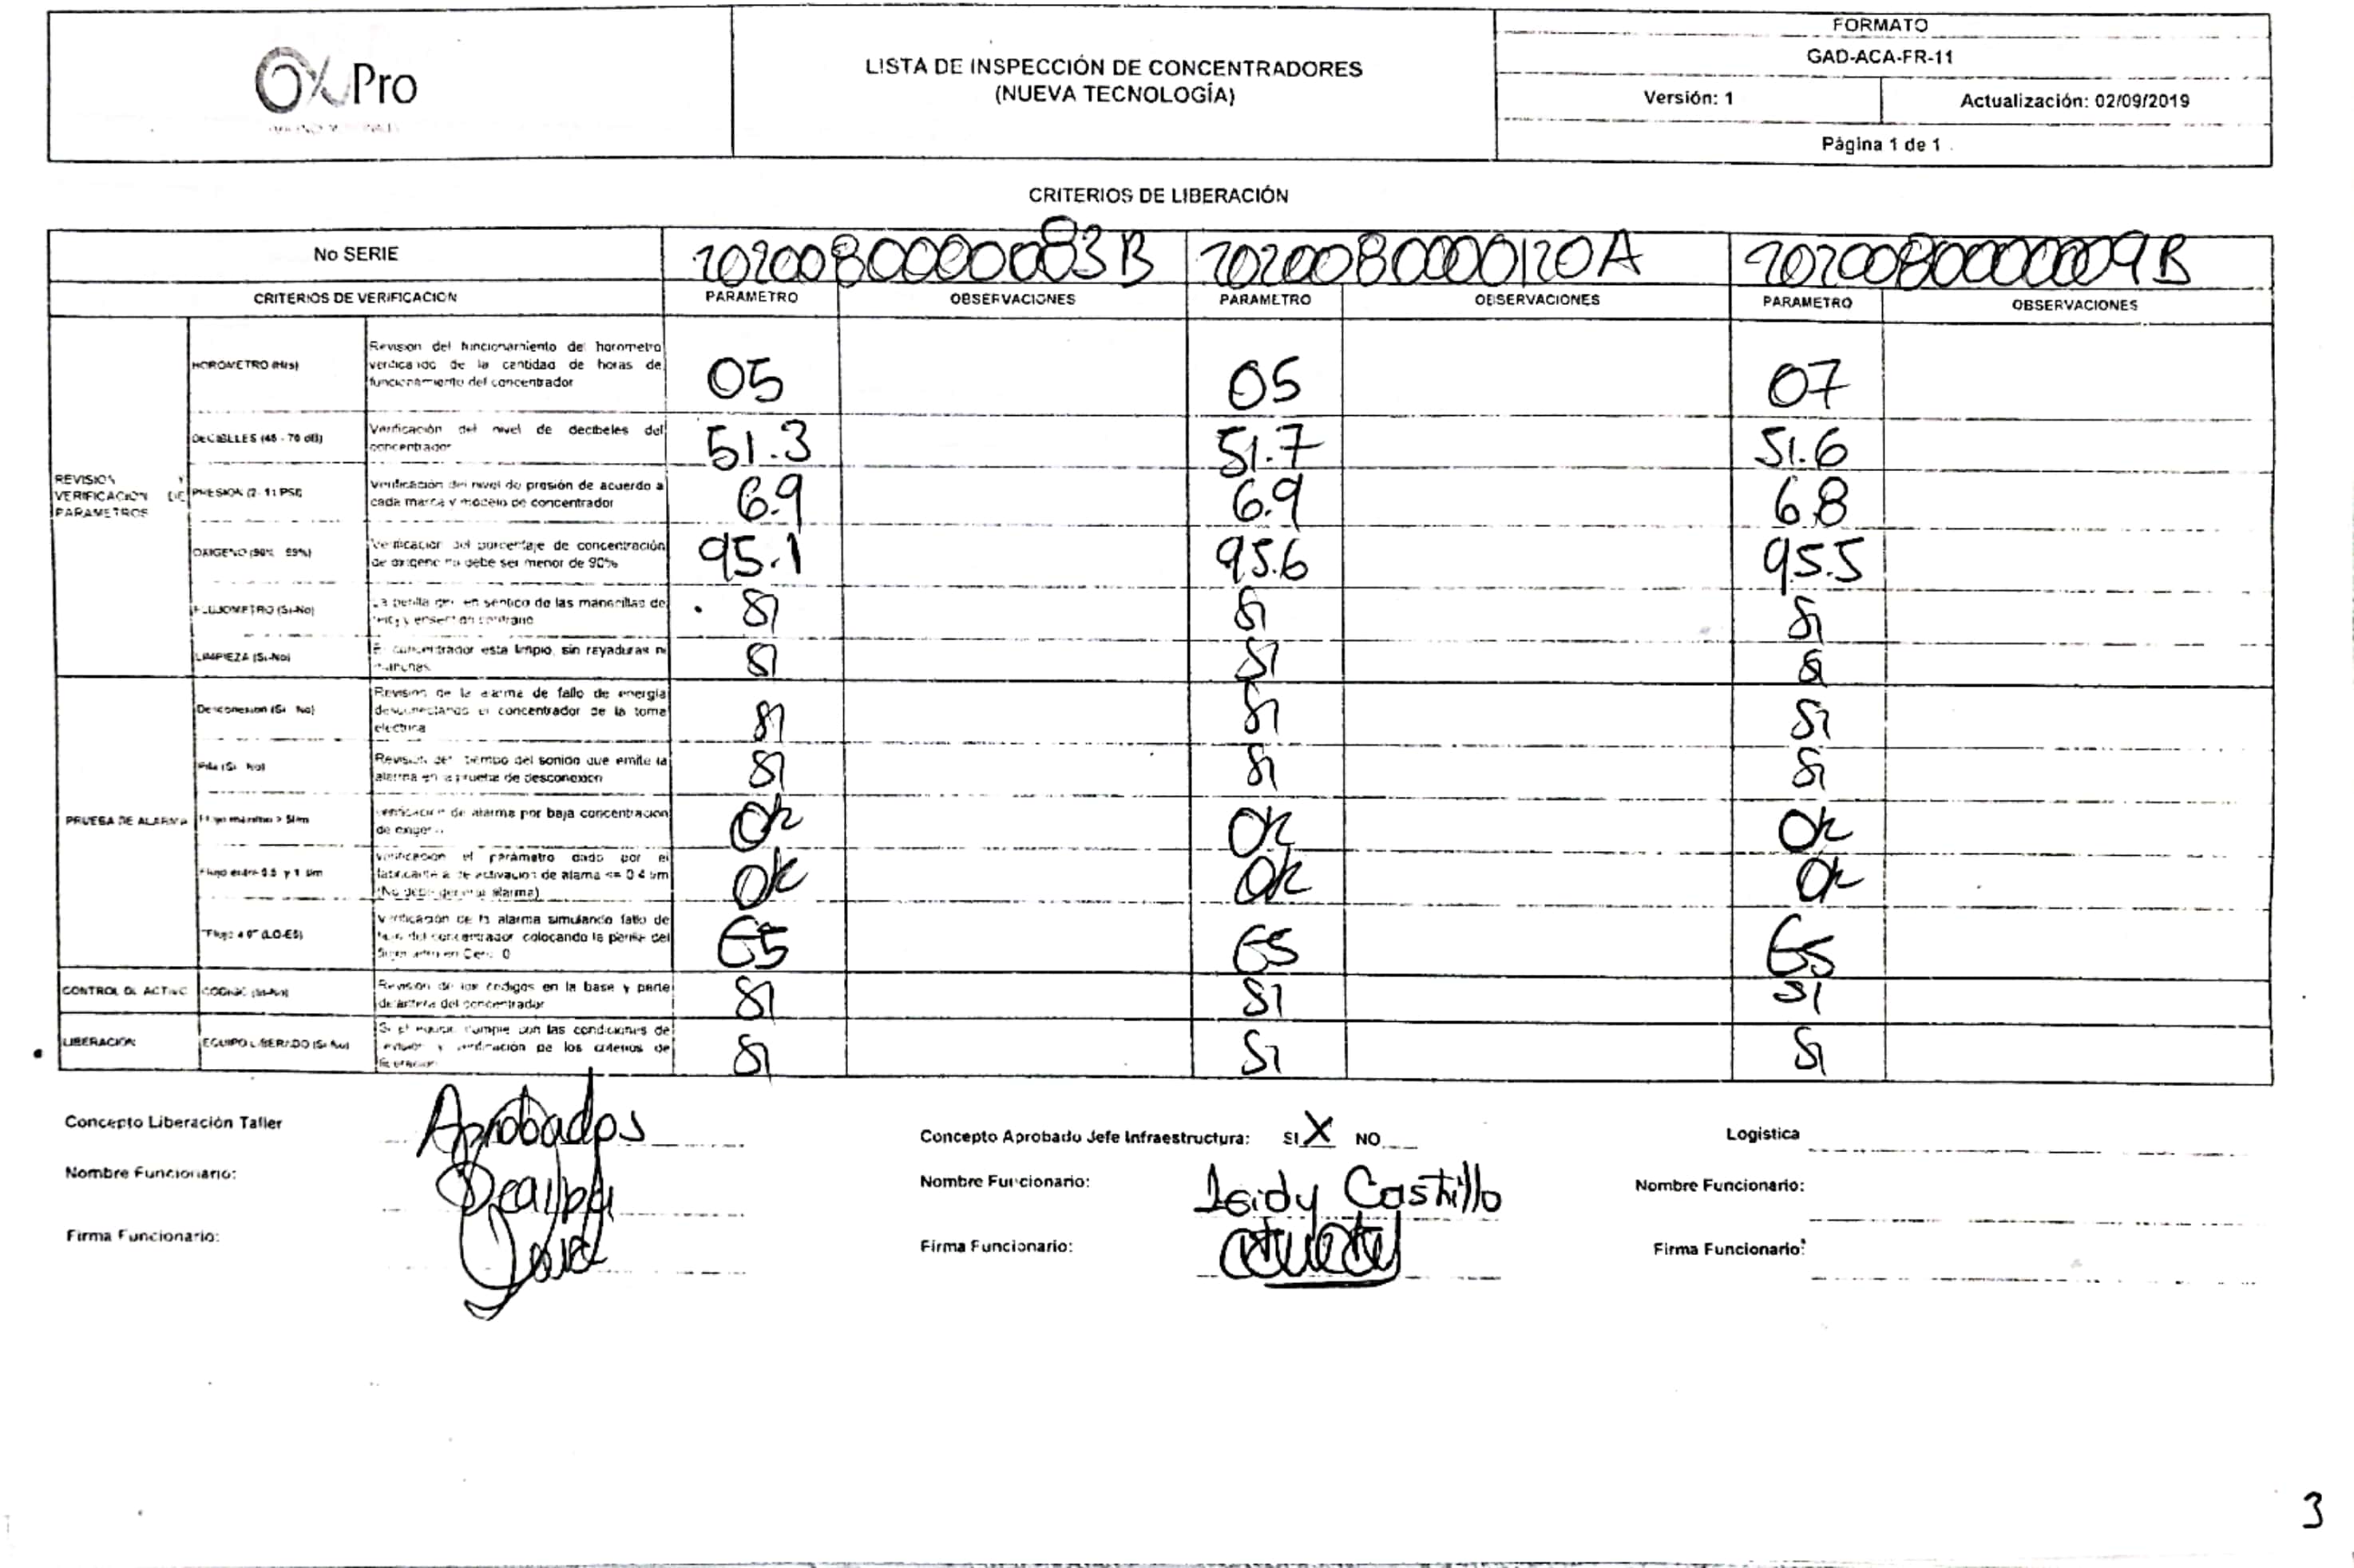 OXPro
LISTA DE INSPECCIÓN DE CONCENTRADORES
(NUEVA TECNOLOGÍA)
FORMATO
GAD-ACA-FR-11
Versión: 1 Actualización: 02/09/2019
Página 1 de 1
CRITERIOS DE LIBERACIÓN
No SERIE
CRITERIOS DE VERIFICACION PARAMETRO OBSERVACIONES PARAMETRO OBSERVACIONES PARAMETRO OBSERVACIONES
REVISION Y VERIFICACION DE PARAMETROS
HOROMETRO (Hrs) Revision del funcionamiento del horometro verificando de la cantidad de horas de funcionamiento del concentrador 05 05 07
DECIBELES (45 - 70 dB) Verificación del nivel de decibeles del concentrador 51.3 51.7 51.6
PRESION (2- 11 PSI) Verificación del nivel de presión de acuerdo a cada marca y modelo de concentrador 6.9 6.9 6.8
OXIGENO Verificación del porcentaje de concentración de oxigeno no debe ser menor de 90% 95.1 95.6 95.5
FLUJOMETRO (Si-No) La perilla en sentido de las manecillas de SI SI SI
LIMPIEZA (Si-No) El concentrador esta limpio, sin rayaduras ni manchas SI SI SI
PRUEBA DE ALARMA
Desconexion (Si No) Revision de la alarma de fallo de energia desconectando el concentrador de la toma electrica SI SI SI
Pila (Si No) Revision del tiempo del sonido que emite la alarma en la prueba de desconexion SI SI SI
Verificacion de alarma por baja concentracion de OK OK OK
Flujo entre 0.5 y 1 Verificacion el parámetro dado por el OK OK OK
"Flujo a 0" (LO-E5) Verificación de la alarma simulando fallo de del concentrador colocando la perilla del E5 E5 E5
CONTROL DE ACTIVO CODIGO (Si-No) Revisión de los codigos en la base y parte delantera del concentrador SI SI SI
LIBERACION EQUIPO LIBERADO (Si No) Si el equipo cumple con las condiciones de verificación de los criterios de liberacion SI SI SI
Concepto Liberación Taller Aprobados
Concepto Aprobado Jefe Infraestructura: SI X NO
Logistica
Nombre Funcionario:
Nombre Funcionario: Leidy Castillo
Nombre Funcionario:
Firma Funcionario:
Firma Funcionario:
Firma Funcionario:
3